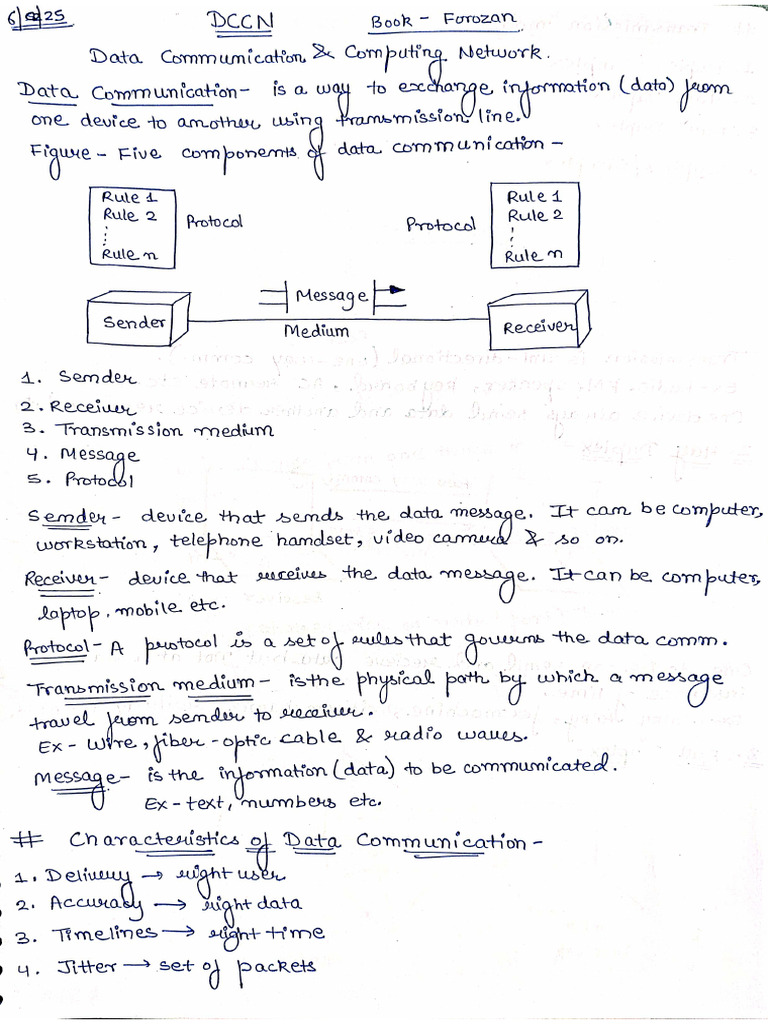 DCCN
Book - Forozan
Data Communication & Computing Network.
Data Communication - is a way to exchange information (data) from
one device to another using transmission line.
Figure - Five components of data communication -
Rule 1
Rule 2
Rule n
Protocol
Protocol
Rule 1
Rule 2
Rule n
Message
Sender
Medium
Receiver
1. Sender
2. Receiver
3. Transmission medium
4. Message
5. Protocol
Sender - device that sends the data message. It can be computer,
workstation, telephone handset, video camera & so on.
Receiver - device that receives the data message. It can be computer,
laptop, mobile etc.
Protocol - A protocol is a set of rules that governs the data comm.
Transmission medium - is the physical path by which a message
travel from sender to receiver.
Ex - wire, fiber-optic cable & radio waves.
Message - is the information (data) to be communicated.
Ex - text, numbers etc.
# Characteristics of Data Communication -
1. Delivery → right user
2. Accuracy → right data
3. Timelines → right time
4. Jitter → set of packets